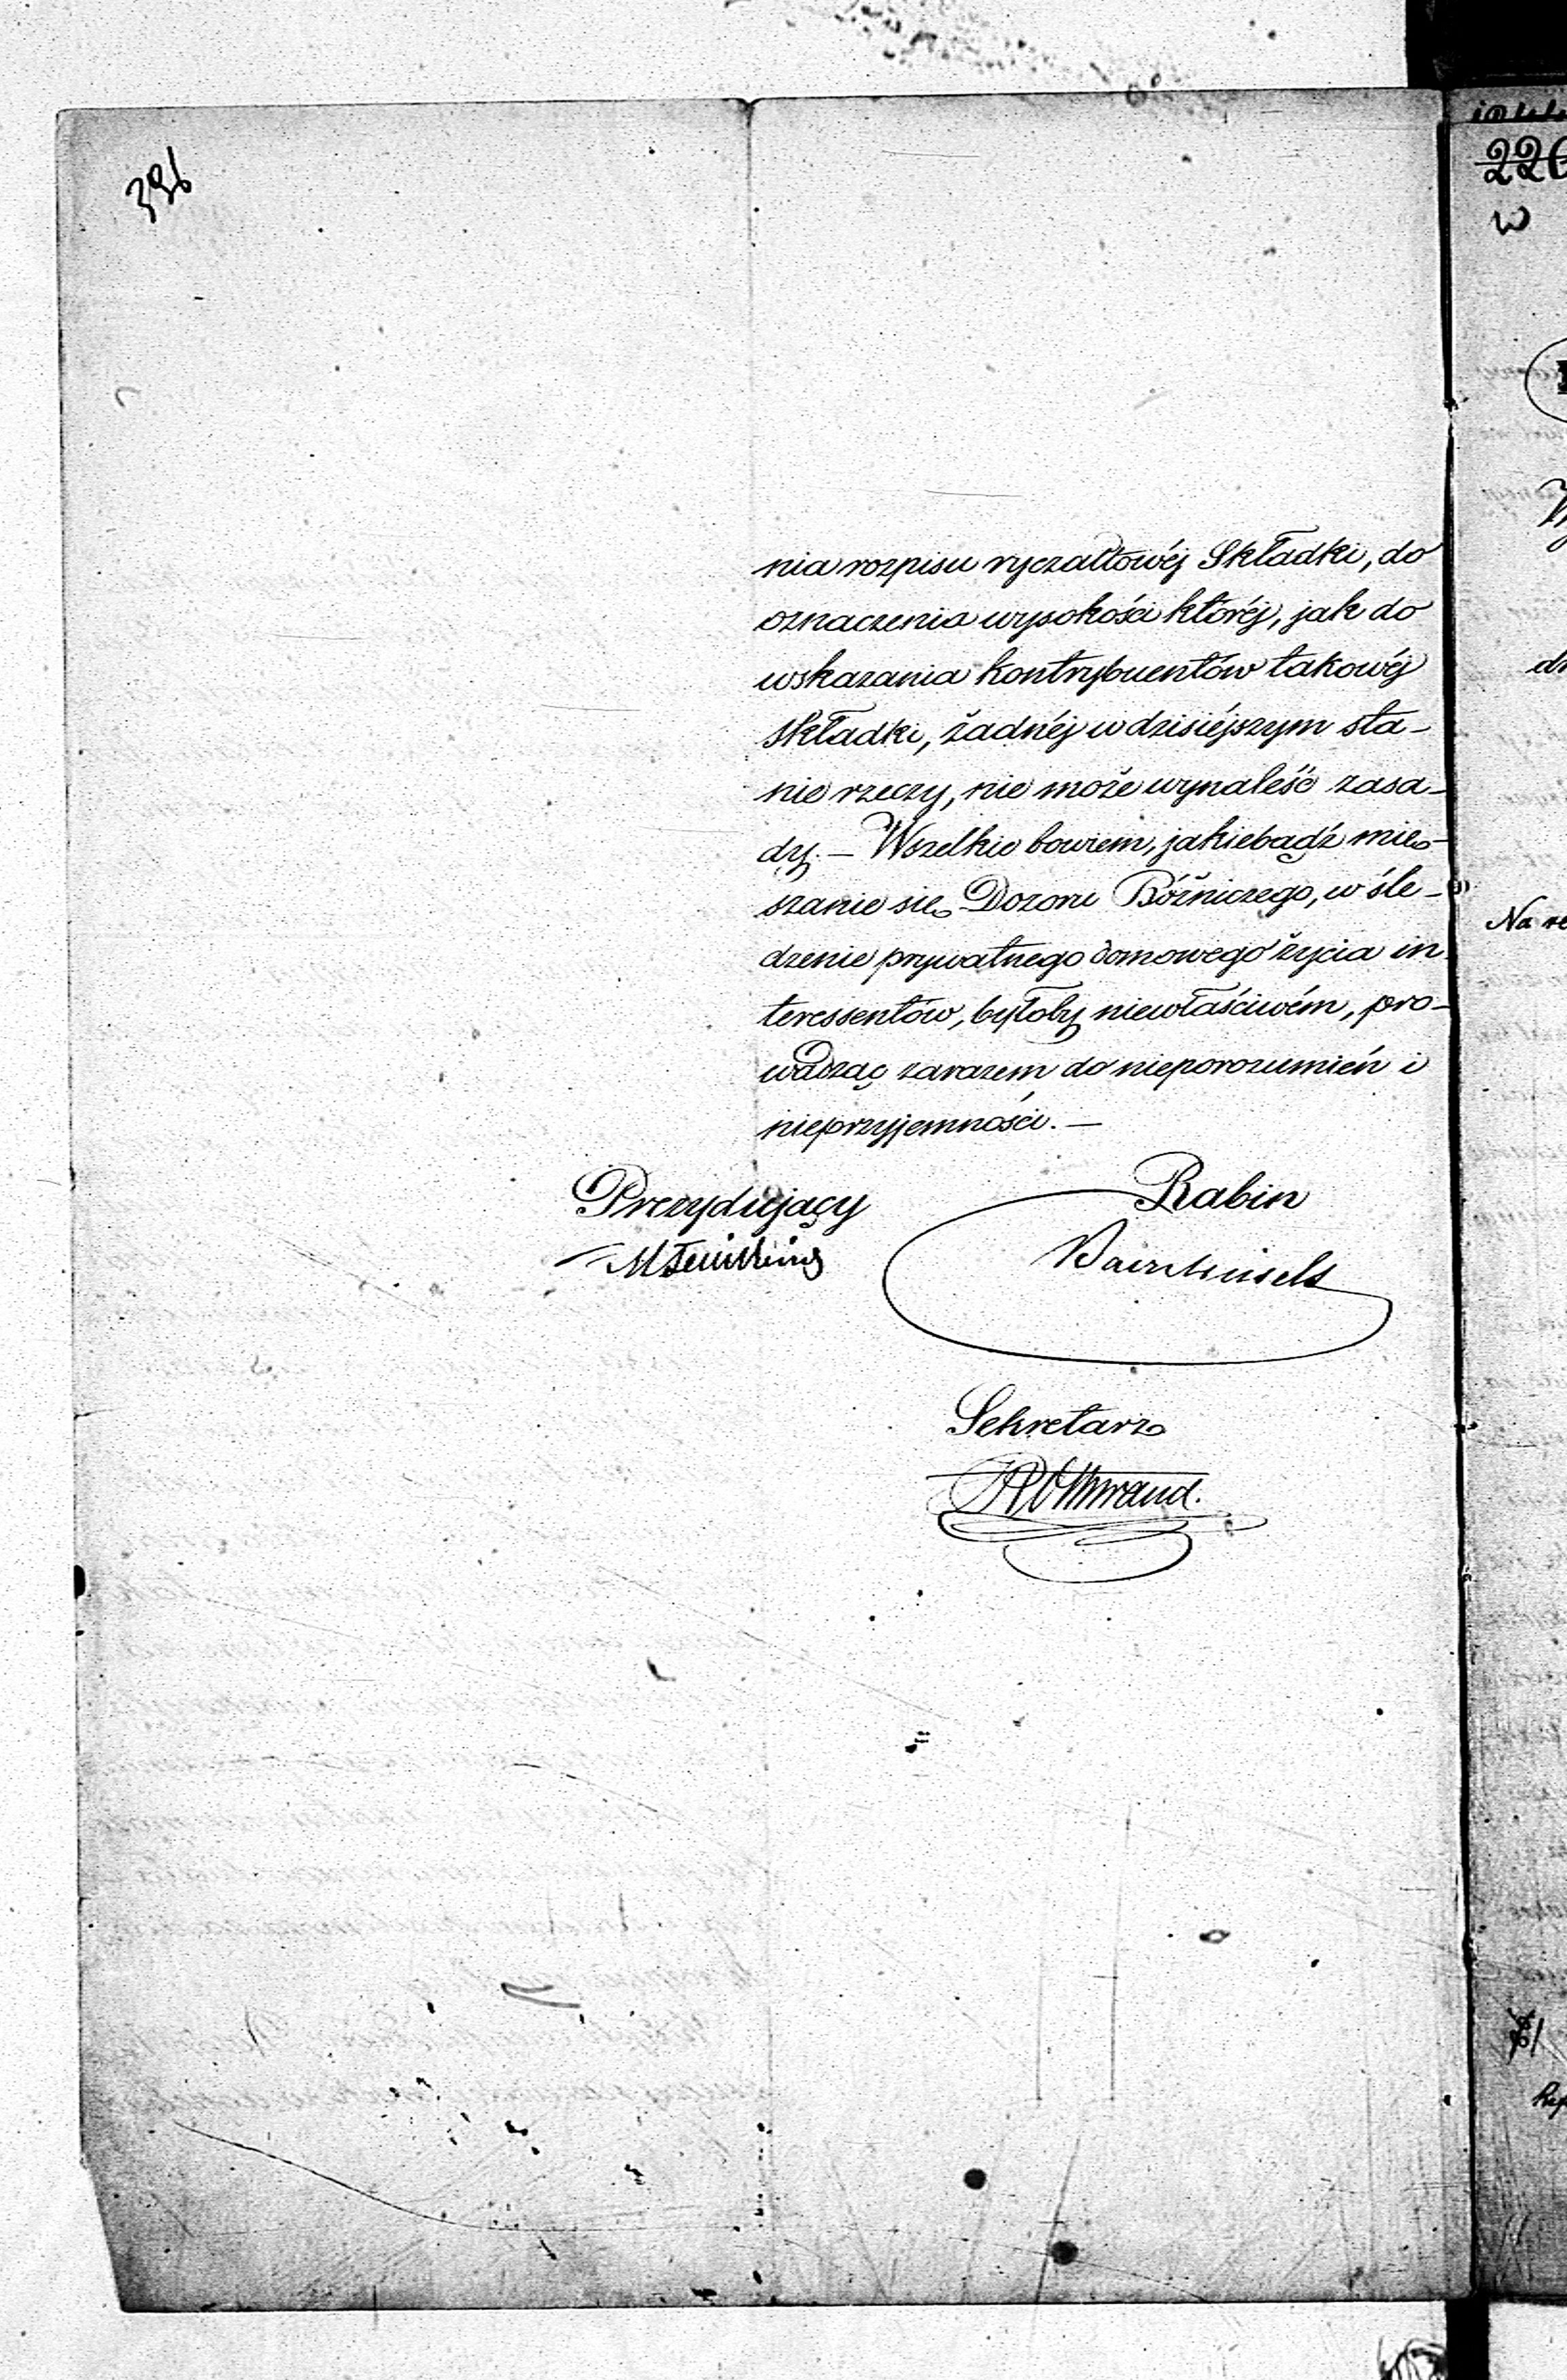 396
nia rozpisu ryczałtowéj Składki, do
oznaczenia wysokości któréj, jak do
wskazania kontrybuentów takowéj
składki, żadnéj w dzisiéjszym sta-
nie rzeczy, nie może wynaleść zasa-
dy. — Wszelkie bowiem, jakiebądź mie-
szanie się Dozoru Bóżniczego, w śle-
dzenie prywatnego domowego życia in-
teressentów, byłoby niewłaściwém, pro-
wadząc zarazem do nieporozumień i
nieprzyjemności. —
Prezydujący
Rabin
Sekretarz
220
w
Na